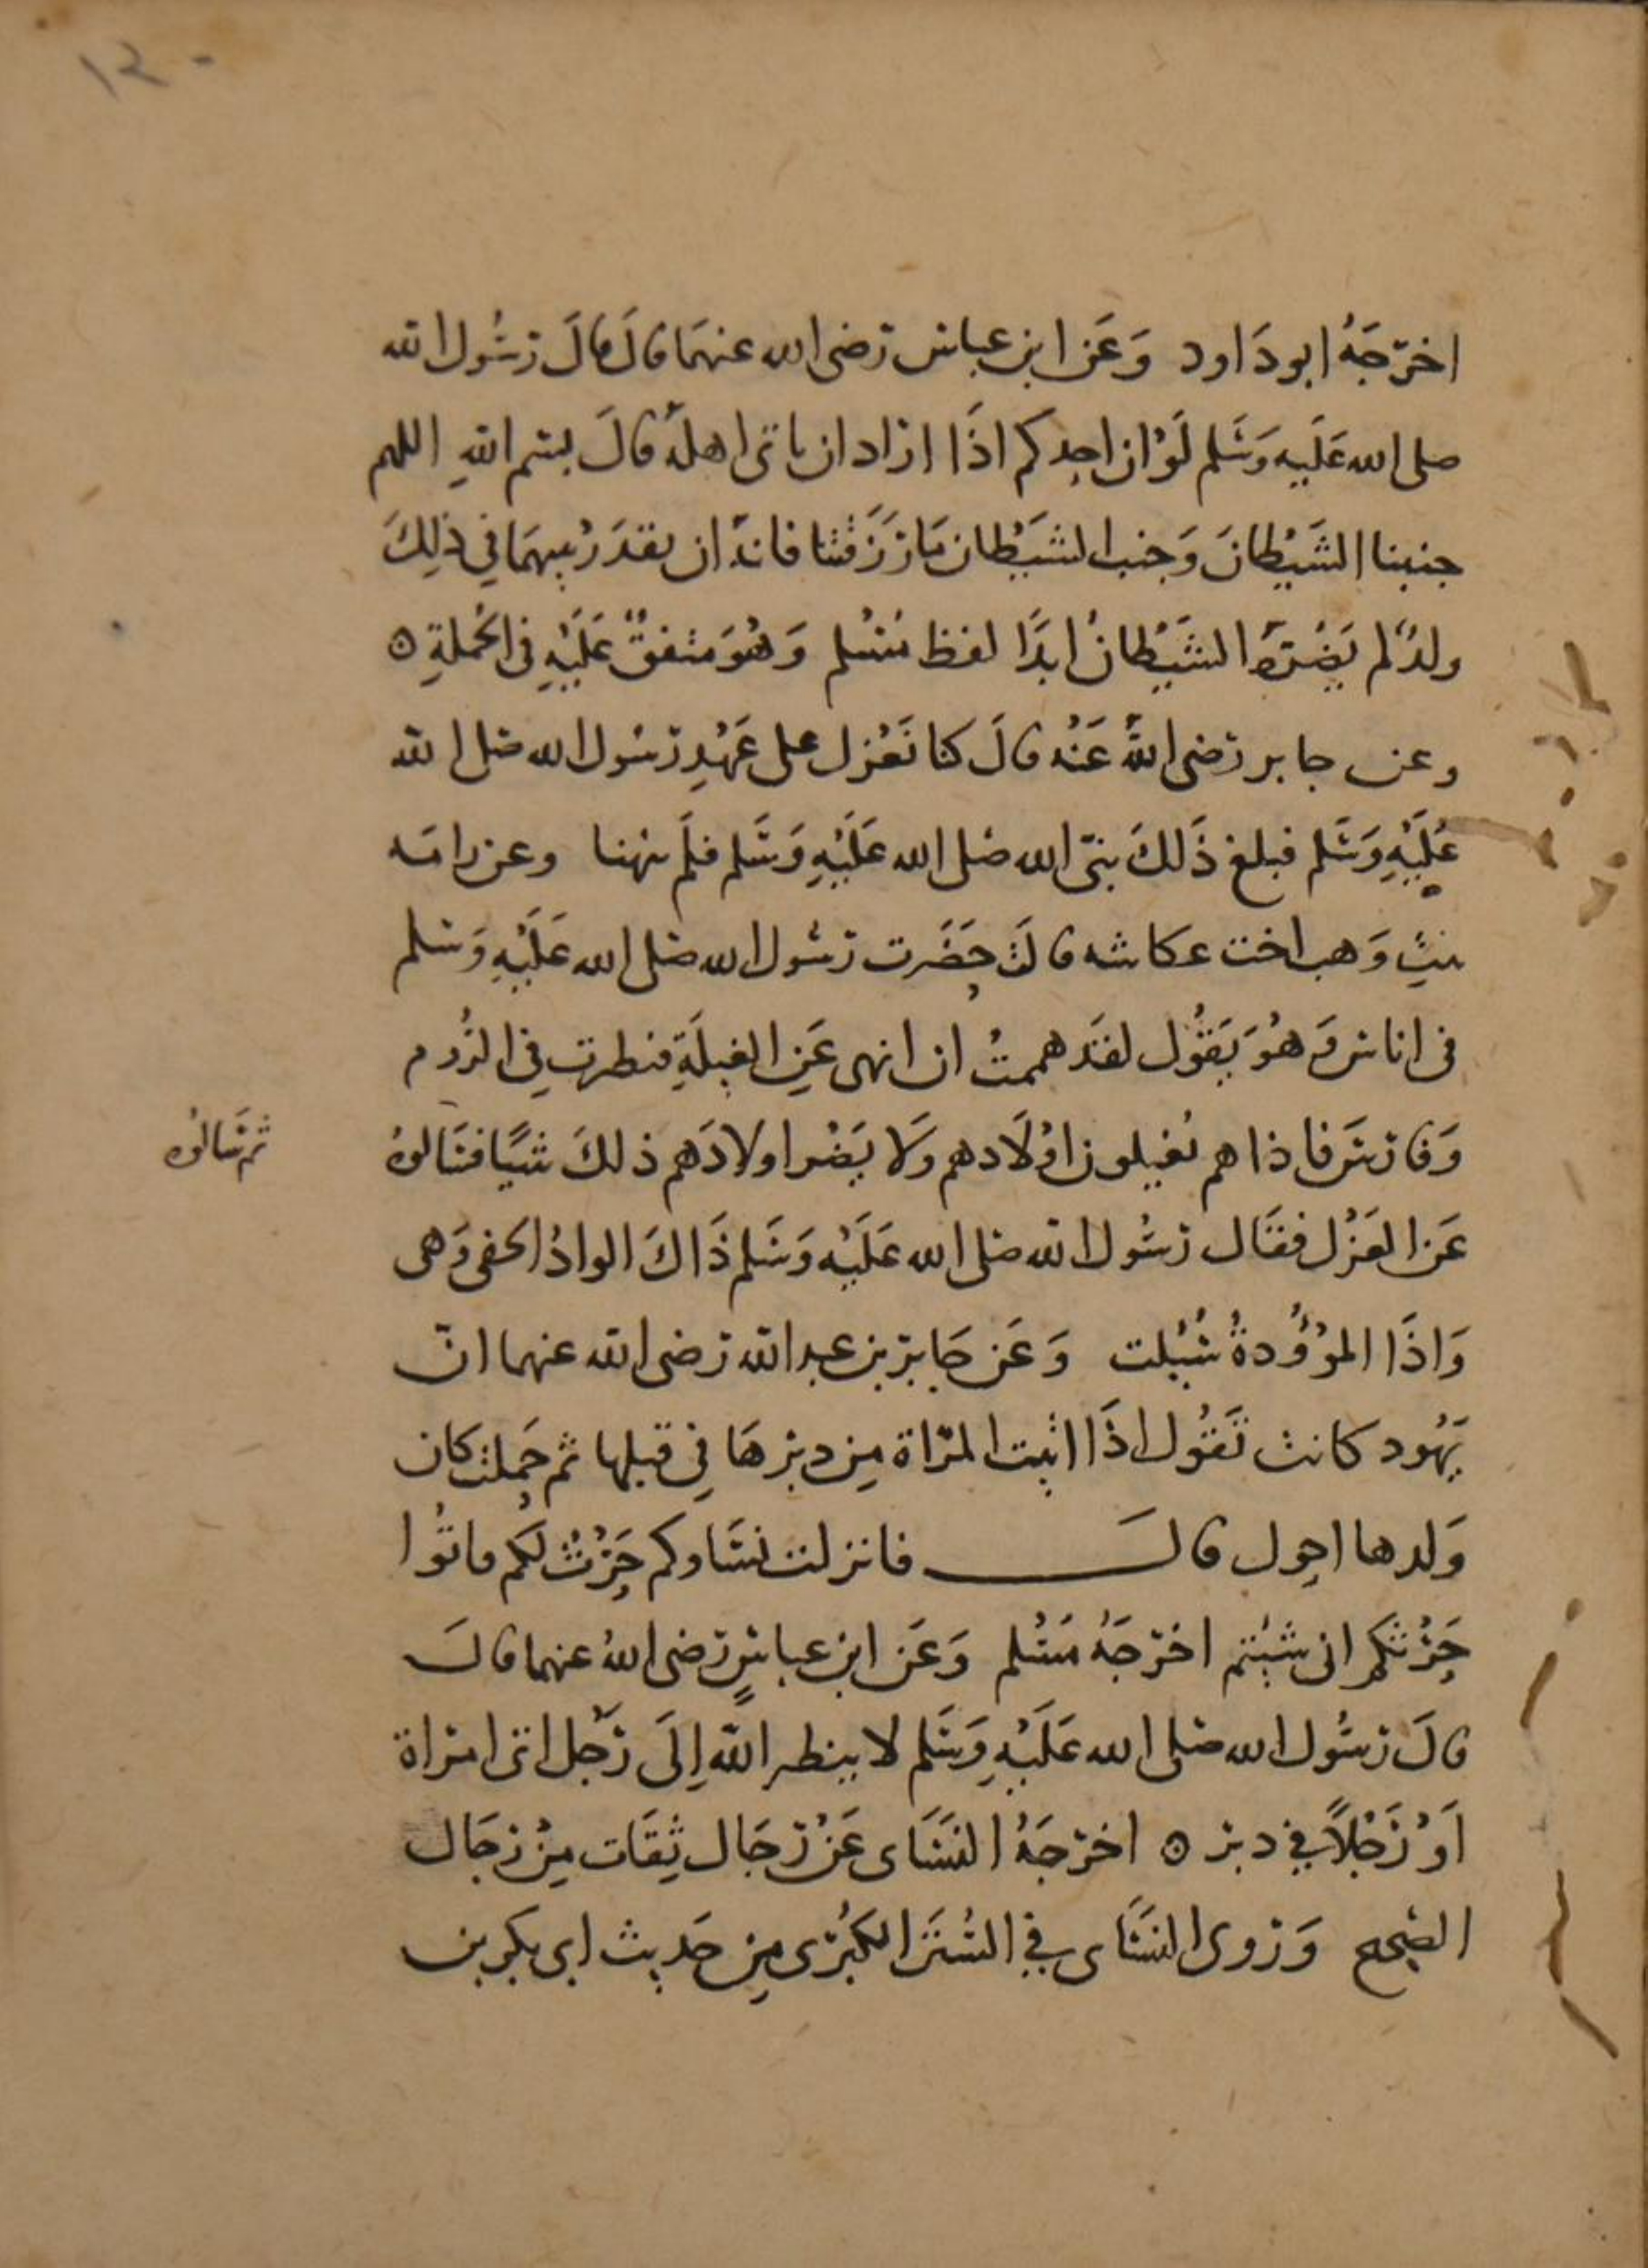 ١٢٠
اخرجَهُ ابو دَاود وَعَن ابن عباس رَضى الله عنهمَا قالَ قالَ رسُول الله
صلى الله عَلَيه وَسَلم لَوْ ان احدكم اذَا اراد ان ياتى اهلَهُ قالَ بسم اللهِ اللهم
جنبنا الشَيْطانَ وَجنب الشَيْطان مَا رَزَقْتنا فانهُ ان يقدَرْ بينهمَا في ذلِكَ
ولدٌ لم يَضُرّهُ الشَيْطانُ ابدًا لفظ مسْلم وَهُوَ متفقٌ عَلَيْهِ في الجُملةِ ه
وعن جابر رَضى اللهُ عَنْه قالَ كنا نَعْزل على عَهْدِ رسُول الله صَلى الله
عَلَيْهِ وَسَلم فبلغ ذَلكَ نبىّ الله صَلى الله عَلَيْهِ وَسَلم فلَم ينهنا وعن جدامَه
بنتِ وَهب اخت عكاشه قالَت حَضَرت رسُول الله صَلى الله عَلَيْهِ وَسَلم
في اناس وَهُوَ يَقُول لقَد هممتُ ان انهى عَنِ الغيلَةِ فنظرت فِي الرُوم
وَفارسَ فاذا هم يُغيلون اوْلَادهم وَلا يَضُر اولادَهم ذلكَ شَيًا فسَالوهُ
ثم سَالوُه
عَن العَزْل فقَال رسُول الله صَلى الله عَلَيْه وَسَلم ذَاكَ الوادُ الخفى وَهى
وَاذَا الموْؤُدةُ سُئِلت وَعَن جَابر بن عبد الله رَضى الله عنهما انّ
يَهُود كانت تَقُول اذَا اتيت المرَاة مِن دبرهَا فِي قبلها ثم حَملت كان
وَلدها احول قالَ فانزلت نسَاوكم حَرْثٌ لكُم فاتُوا
حَرْثكم انى شيتم اخرجَهُ مسْلم وَعَن ابن عباسٍ رَضى اللهُ عنهما قالَ
قالَ رسُول الله صَلى الله عَلَيْهِ وَسَلم لا ينظر اللهُ اِلَى رَجُل اتى امراة
اَوْ رَجُلاً في دبر ه اخرجَهُ النسَاى عَنْ رجَال ثِقَات مِنْ رجَال
الصَحيح وَروى النسَاى فِي السُنَن الكبْرَى مِن حَديث ابى بكر بن